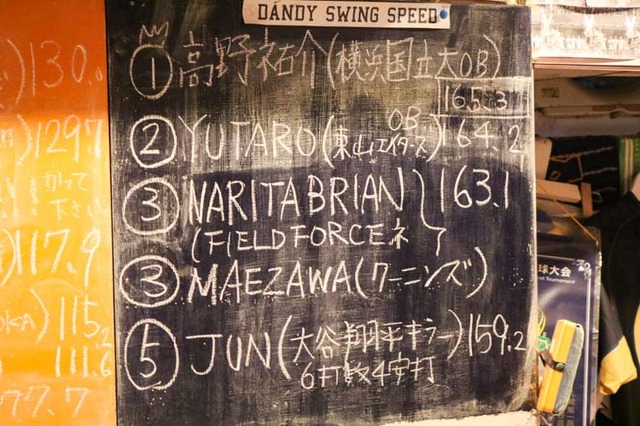 DANDY SWING SPEED
① 高野祐介(横浜国立大OB)
165.3
② YUTARO(東山エイタース OB) 164.2
③ NARITABRIAN } 163.1
(FIELDFORCEネ
③ MAEZAWA(クーニンズ)
⑤ JUN(大谷翔平キラー) 159.2
6打数4安打
130.
129.7
かって
下さい
117.9
115.2
111.6
77.7
球大会